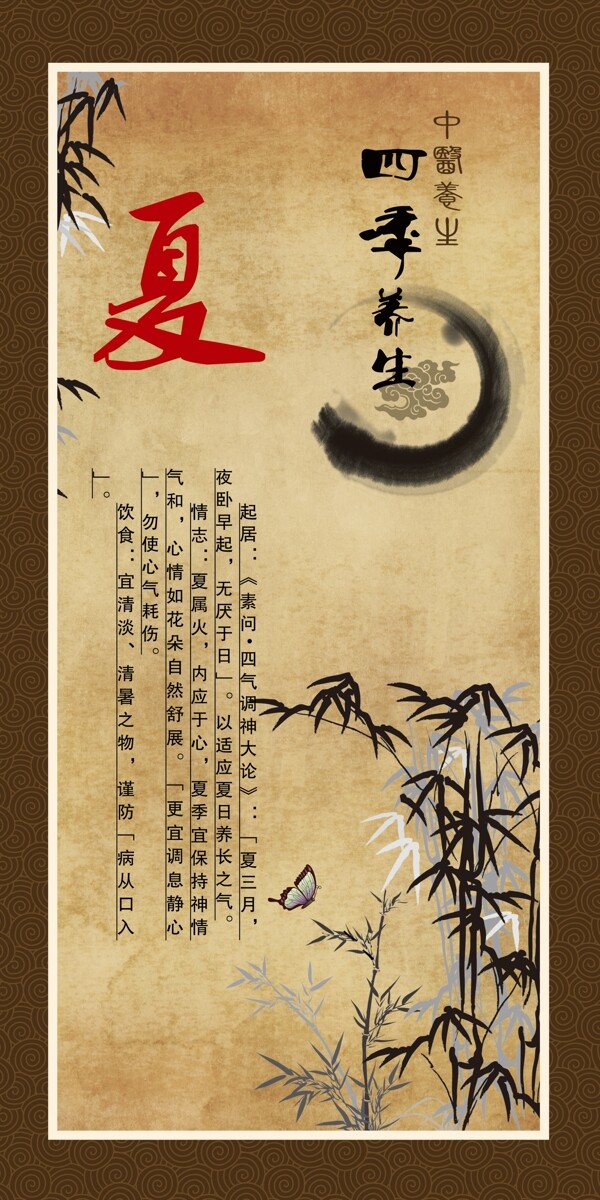 中醫養生
四季养生
夏
起居：《素问·四气调神大论》：「夏三月，
夜卧早起，无厌于日」。以适应夏日养长之气。
情志：夏属火，内应于心，夏季宜保持神情
气和，心情如花朵自然舒展。「更宜调息静心
」，勿使心气耗伤。
饮食：宜清淡、清暑之物，谨防「病从口入
」。